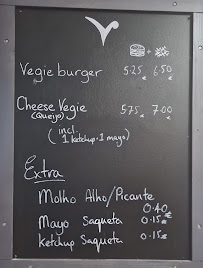 +
Vegie burger 5.25€ 6.50€
Cheese Vegie 5.75€ 7.00€
(Queijo)
( incl.
1 ketchup + 1 mayo )
Extra
Molho Alho/Picante
0.40€
Mayo Saqueta 0.15€
Ketchup Saqueta 0.15€